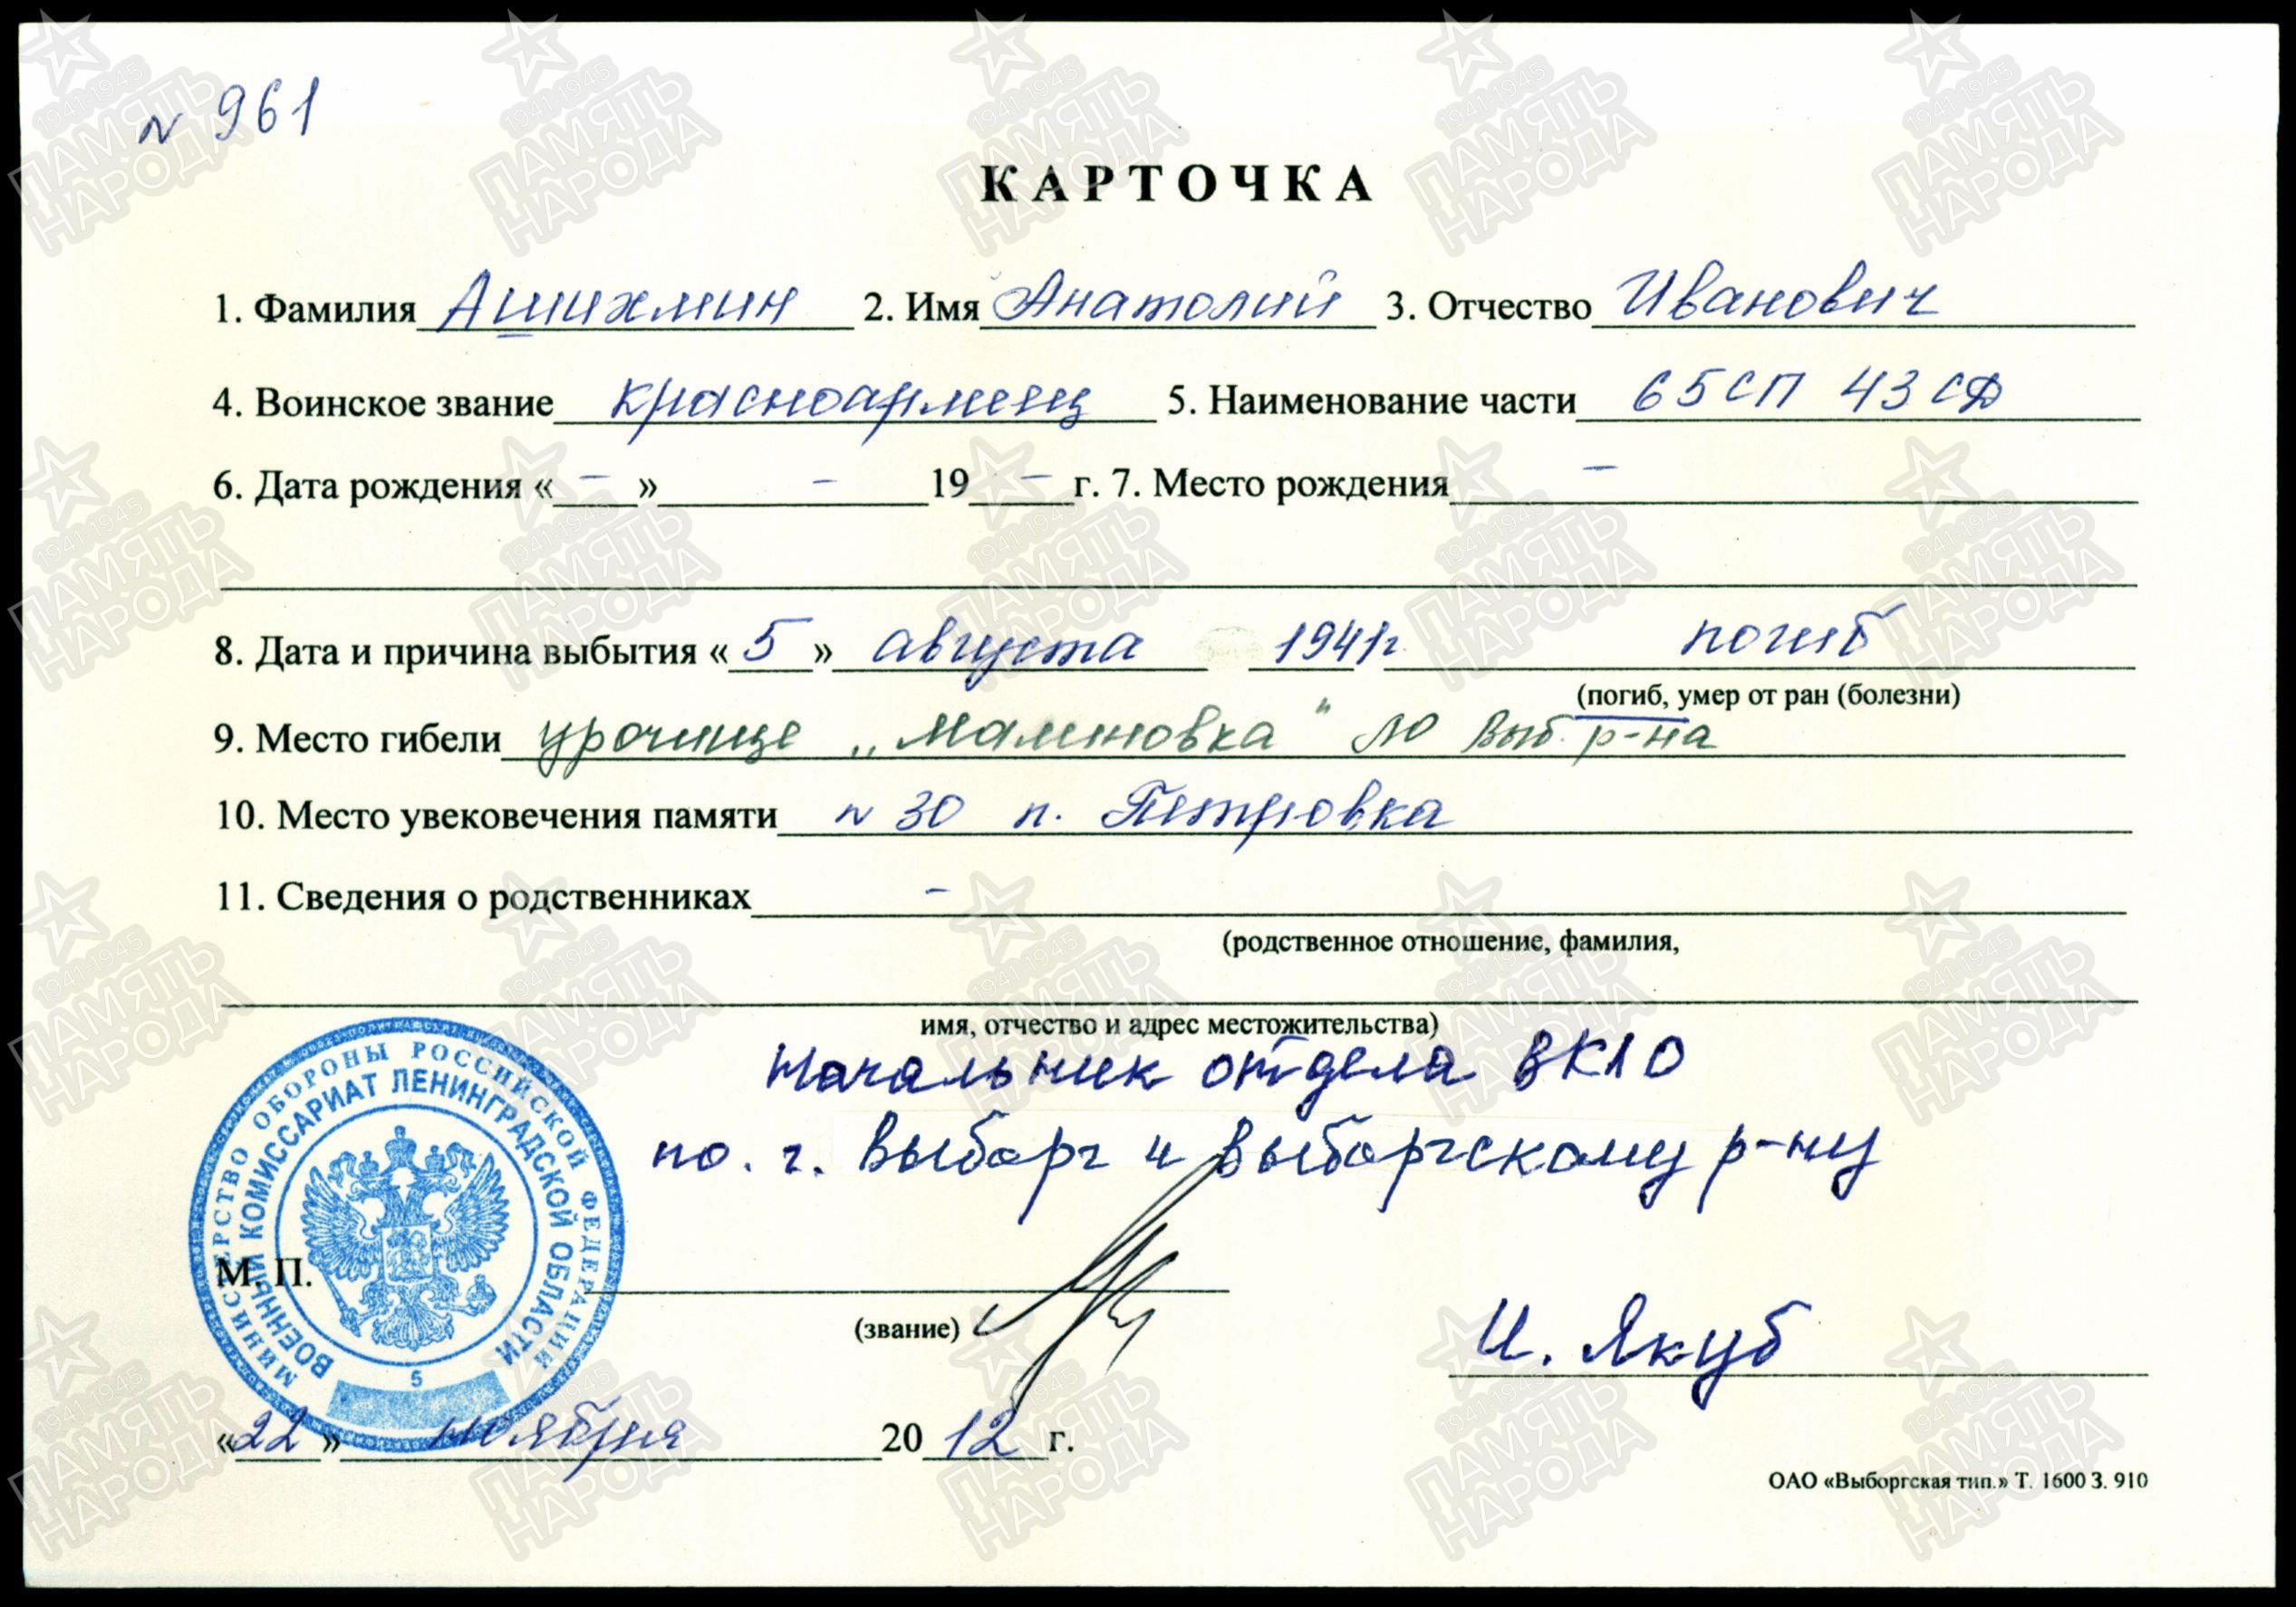 N 961
КАРТОЧКА
1. Фамилия Ашихмин 2. Имя Анатолий 3. Отчество Иванович
4. Воинское звание красноармеец 5. Наименование части 65 СП 43 СД
6. Дата рождения « – » – 19 – г. 7. Место рождения –
8. Дата и причина выбытия « 5 » августа 1941г. погиб
(погиб, умер от ран (болезни)
9. Место гибели урочище „Малиновка" ЛО Выб. р-на
10. Место увековечения памяти N 30 п. Петровка
11. Сведения о родственниках –
(родственное отношение, фамилия,
имя, отчество и адрес местожительства)
Начальник отдела ВКЛО
по. г. Выборг и Выборгскому р-ну
МИНИСТЕРСТВО ОБОРОНЫ РОССИЙСКОЙ ФЕДЕРАЦИИ
ВОЕННЫЙ КОМИССАРИАТ ЛЕНИНГРАДСКОЙ ОБЛАСТИ
5
М. П.
(звание)
И. Якуб
« 22 » ноября 20 12 г.
ОАО «Выборгская тип.» Т. 1600 З. 910
1941-1945
ПАМЯТЬ
НАРОДА